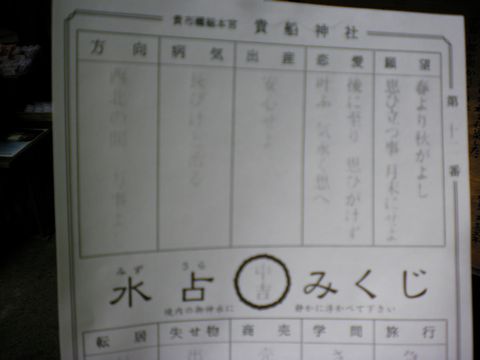 貴船神社
第十二番
願望
春より秋がよし
思ひ立つ事月末にせよ
恋愛
後に至り思ひがけず
叶ふ 気永く思へ
出産
安心せよ
病気
長びけど治る
方向
西北の間 万事よし
みず うら
水占 中吉 みくじ
境内の御神水に 静かに浮かべて下さい
旅行 学問 商売 失せ物 転居